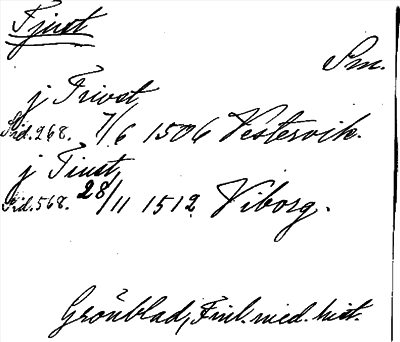 Tjust
Sm.
j Tivst,
Sid. 268. 7/6 1506 Vestervik.
j Tiust,
Sid. 568. 28/11 1512 Viborg.
Grönblad, Finl. med. hist.